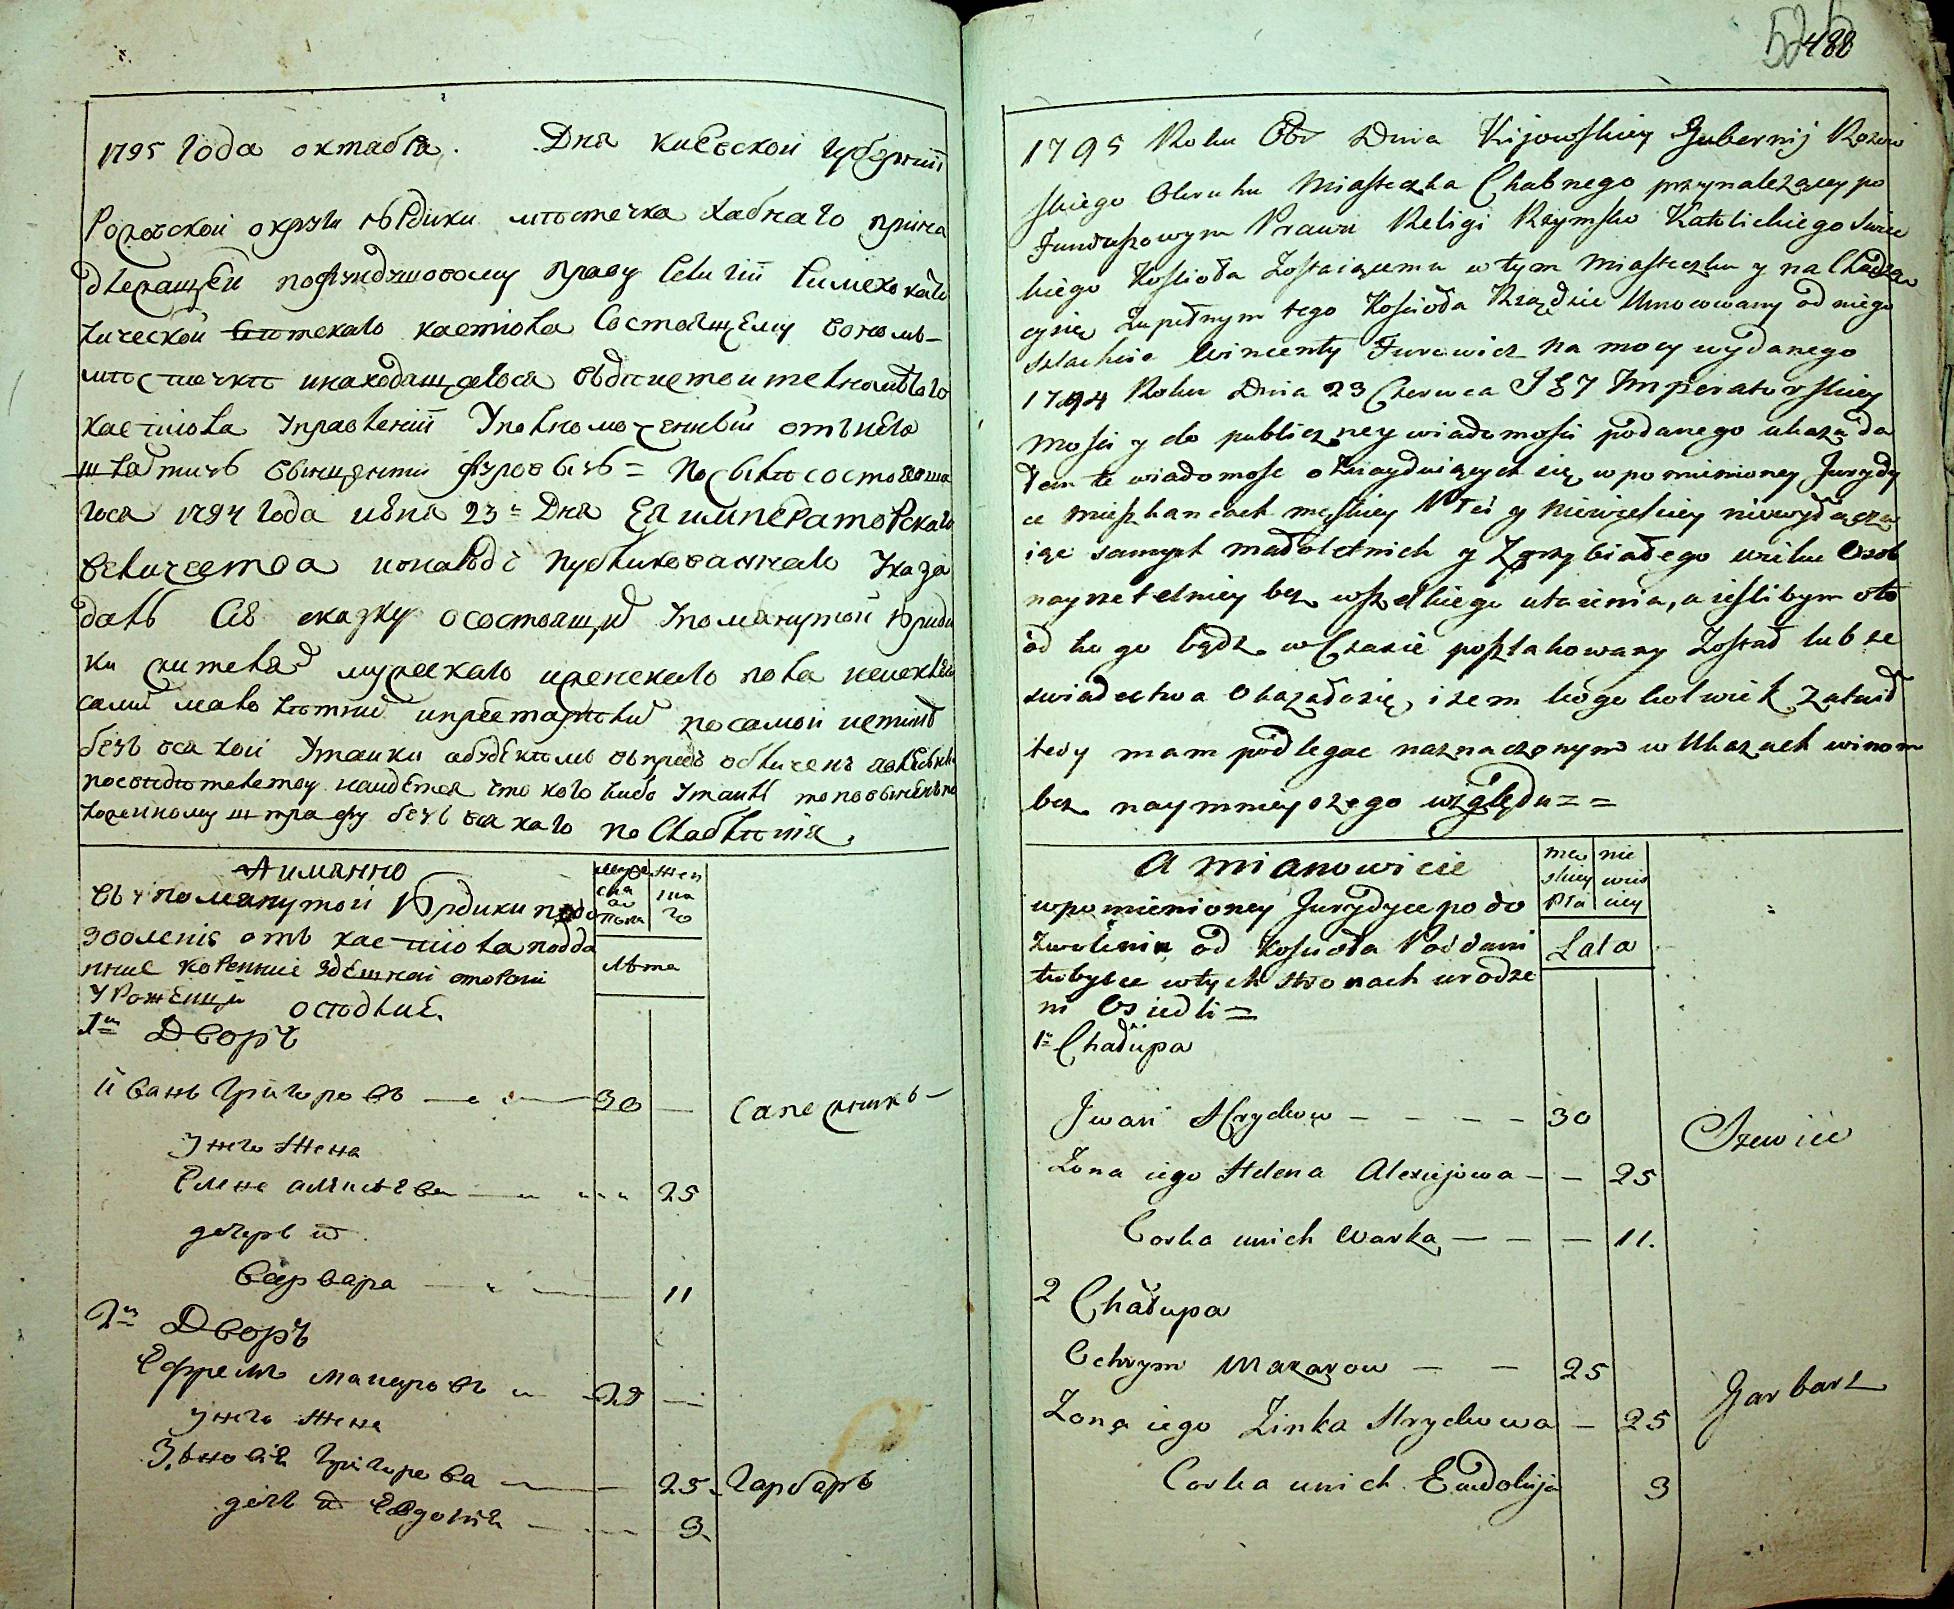 1795 года октабра. Дня киевской губернїи
округи юрдики мѣстечка Хабнаго прина
длежащей пофундушовому праву религїи римскокато
лической костела Состоящему
мѣстечкѣ инаходящегося
костїола Управленїи Уполномоченный отънего
шлятичъ Викцентїй Юровичъ = Посилѣ состоявша
гося 1794 года июня 23 = Дня Ея императорскаго
величества публикованнаго Указа
далъ Сїю сказку осостоящих Упомянутой юриди
ки жителях мужескаго иженскаго пола
самих малолѣтних ипрестарѣлых посамой истиннѣ
безъ всякой Утайки
посвидѣтелству найдется что кого либо Утаилъ
ложенному штрафу безъ всякаго послабленїя.
Аимянно
въупомянутой Юрдики
зволенїе отъ костїола подда
нные коренные здешней стороны
Уроженцы оседлые.
муже
ска
го
пола
жен
ска
го
лѣта
1й Дворъ
Иванъ Григоровъ — 30 — Сапожникъ —
Унего Жена
Елена алексѣева — 25
дочерь их
Варвара — 11
2й Дворъ
Ефремъ макаровъ — 25 —
унего Жена
Зѣновїя Григорева — 25 - Гарбаръ
дочь их Евдокїя — 3
488
1795 Roku 8br Dnia Kijowskiey Gubernij
skiego Okruhu Miasteczka Chabnego przynależącey po
Funduszowym Prawu Religi Rzymsko Katolickiego
kiego Koscioła Zostaiącemu w tym Miasteczku y na
cysię Zupełnym tego Kościoła Rządzie Umocowany od niego
szlachcic Wincenty Jurewicz na mocy wydanego
1794 Roku Dnia 23 Czerwca J E J Imperatorskiey
Mosci y do publiczney wiadomosci podanego ukazu da
łem te wiadomosc o Znayduiących się w pomienioney Jurydy
ce mieszkancach męskiey Płci y Niewieściey niewyłącza
iąc samych małoletnich y Zgrzybiałego wieku Osob
nayrzetelniey bez wszelkiego utaienia, a ieslibym oto
od kogo bądz w Czasie poszlakowany Został lub ze
swiadectwa Okazałosię, izem kogo kolwiek Zataił
tedy mam podlegac naznaczonym w Ukazach winom
bez naymnieyszego względu = =
A mianowicie
wpomienioney Jurydyce po do
zwoleniu od Koscioła Poddani
tubylce wtych stronach urodze
ni Osiedli =
mę
skiey
Płci
nie
wies
ciey
Lata
1. Chałupa
Jwan Hrychow — — — — 30
Szewiec
Zona iego Helena Alexiejowa — — 25
Corka unich Warka — — — 11.
2 Chałupa
Ochrym Makarow — — 25
Garbarz
Zona iego Zinka Hrychowa — 25
Corka unich Ewdokija 3